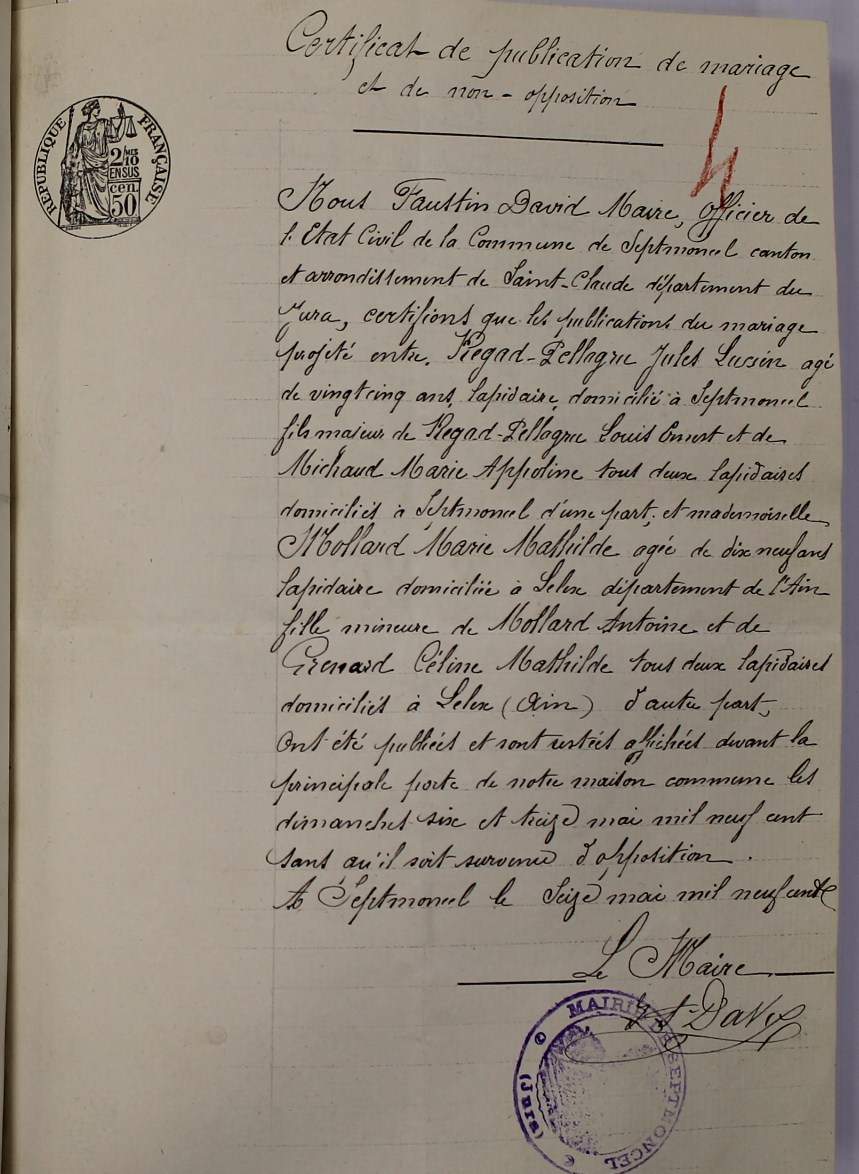 Certificat de publication de mariage
et de non-opposition
4
RÉPUBLIQUE FRANÇAISE
2/10 MES
EN SUS
cen.
50
Nous Faustin David Maire, officier de
l'Etat Civil de la Commune de Septmoncel canton
et arrondissement de Saint-Claude département du
Jura, certifions que les publications du mariage
projeté entre. Regad-Pellagru Jules Lucien agé
de vingt cinq ans, lapidaire, domicilié à Septmoncel
fils majeur de Regad-Pellagru Louis Ernest et de
Michaud Marie Appoline tous deux lapidaires
domiciliés à Septmoncel d'une part; et mademoiselle
Mollard Marie Mathilde agée de dix neuf ans
lapidaire domiciliée à Lelex département de l'Ain
fille mineure de Mollard Antoine et de
Grenard Céline Mathilde tous deux lapidaires
domiciliés à Lelex (Ain) d'autre part,
Ont été publiées et sont restées affichées devant la
principale porte de notre maison commune les
dimanches six et treize mai mil neuf cent
sans qu'il soit survenu d'opposition.
A Septmoncel le Seize mai mil neuf cent
Le Maire
F. David
MAIRIE DE SEPTMONCEL
(JURA)